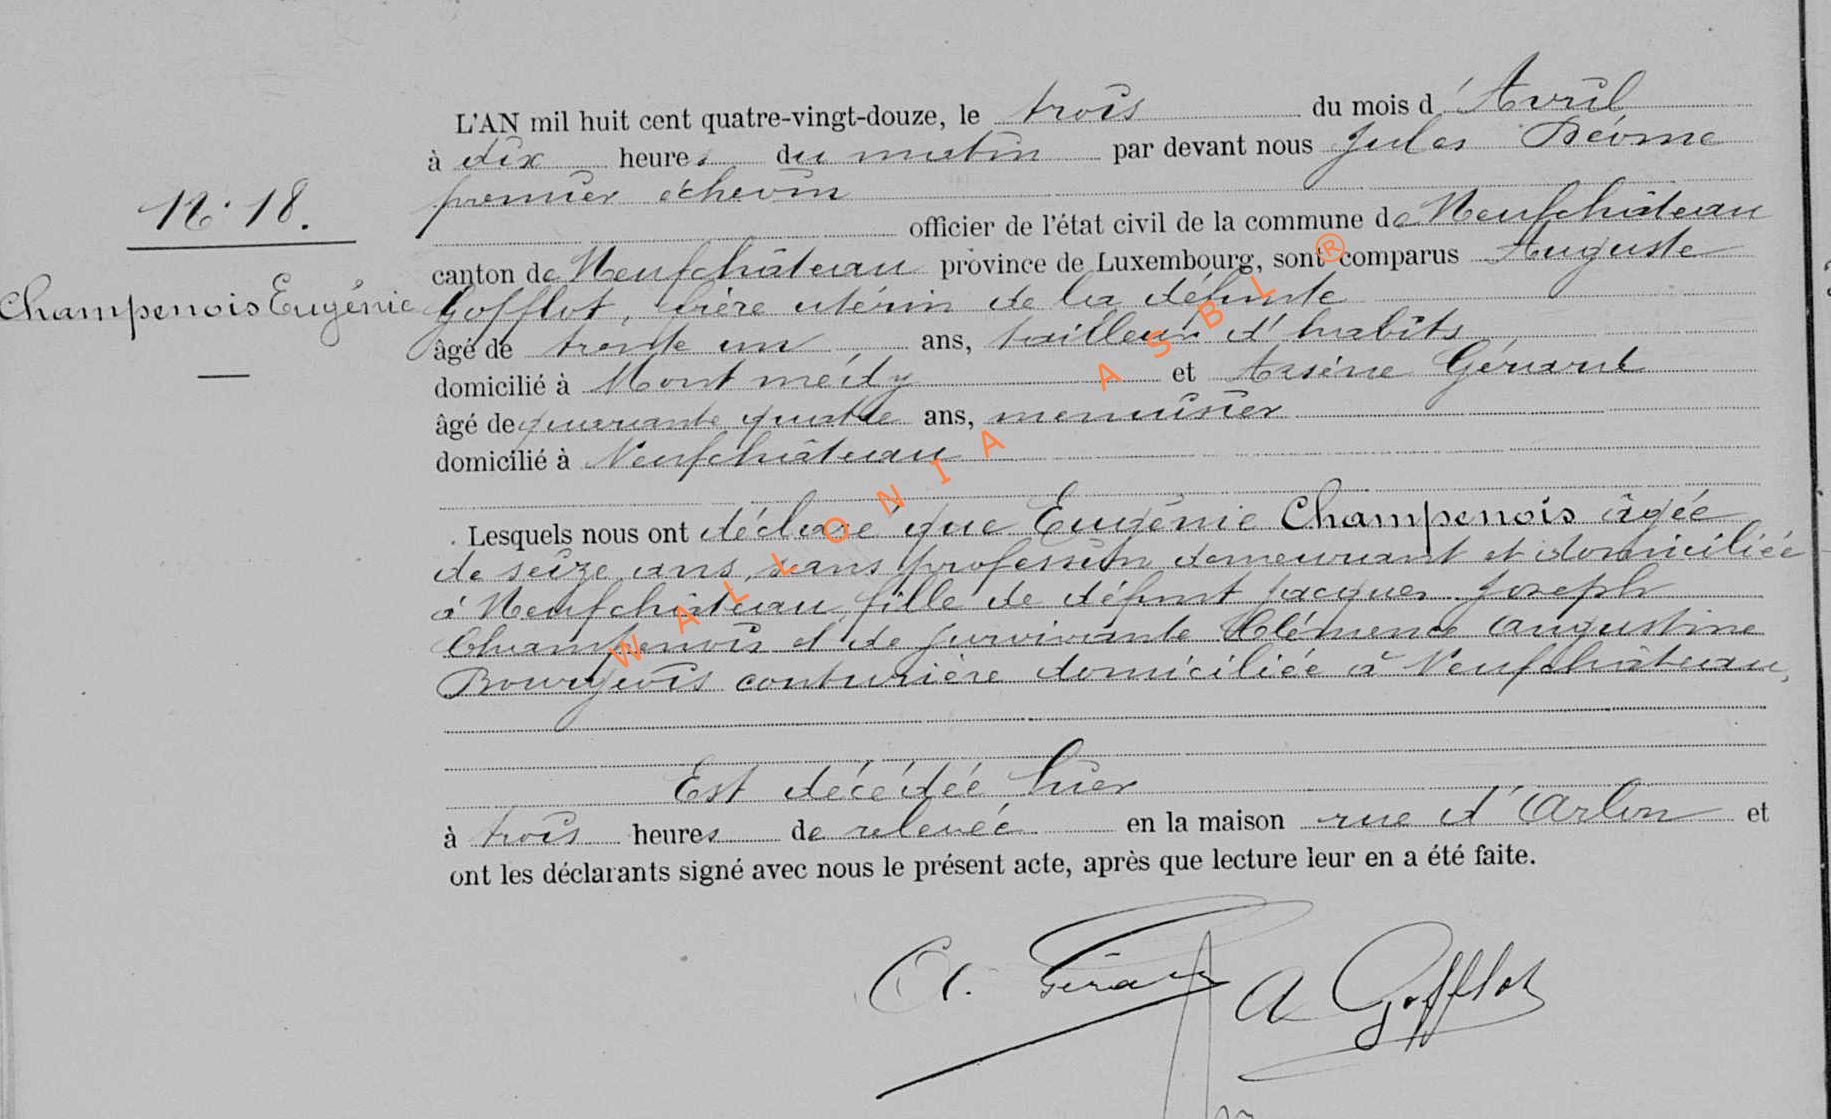 L'AN mil huit cent quatre-vingt-douze, le trois du mois d'Avril
à dix heures du matin par devant nous Jules Déome
premier échevin
N. 18.
officier de l'état civil de la commune de Neufchâteau
canton de Neufchâteau province de Luxembourg, sont comparus Auguste
Champenois Eugénie
Gofflot, frère utérin de la défunte
âgé de trente un ans, tailleur d'habits
domicilié à Montmédy et Arsène Gérard
âgé de quarante quatre ans, menuisier
domicilié à Neufchâteau
Lesquels nous ont déclaré que Eugénie Champenois âgée
de seize ans, sans profession demeurant et domiciliée
à Neufchâteau fille de défunt Jacques Joseph
Champenois et de survivante Clémence Augustine
Bourgeois couturière domiciliée à Neufchâteau,
Est décédée hier
à trois heures de relevée en la maison rue d'Arlon et
ont les déclarants signé avec nous le présent acte, après que lecture leur en a été faite.
A. Gérard A Gofflot
WALLONIA ASBL®